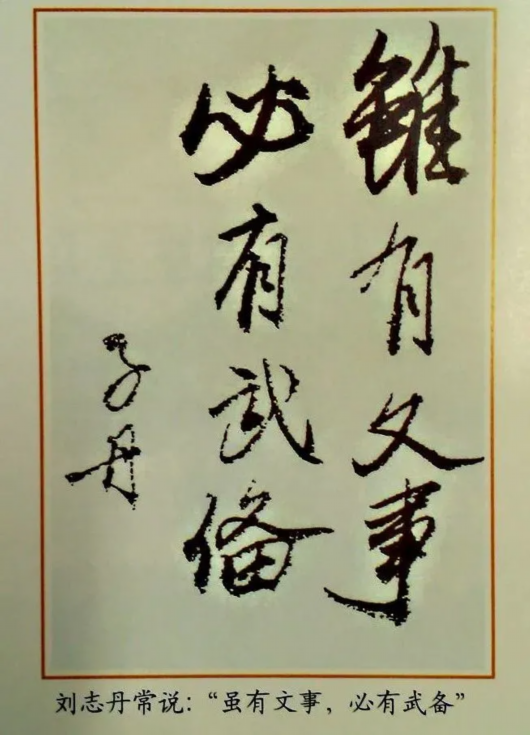 雖有文事
必有武備
子丹
刘志丹常说：“虽有文事，必有武备”